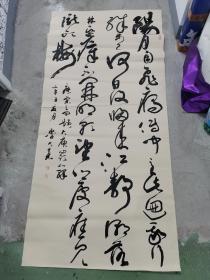 陽月南飛雁傳聞至此迴我行
殊未已何日復歸來江靜潮初落
林昏瘴不開明朝望鄉處應見
隴頭梅 唐宋之問題大庾嶺北驛